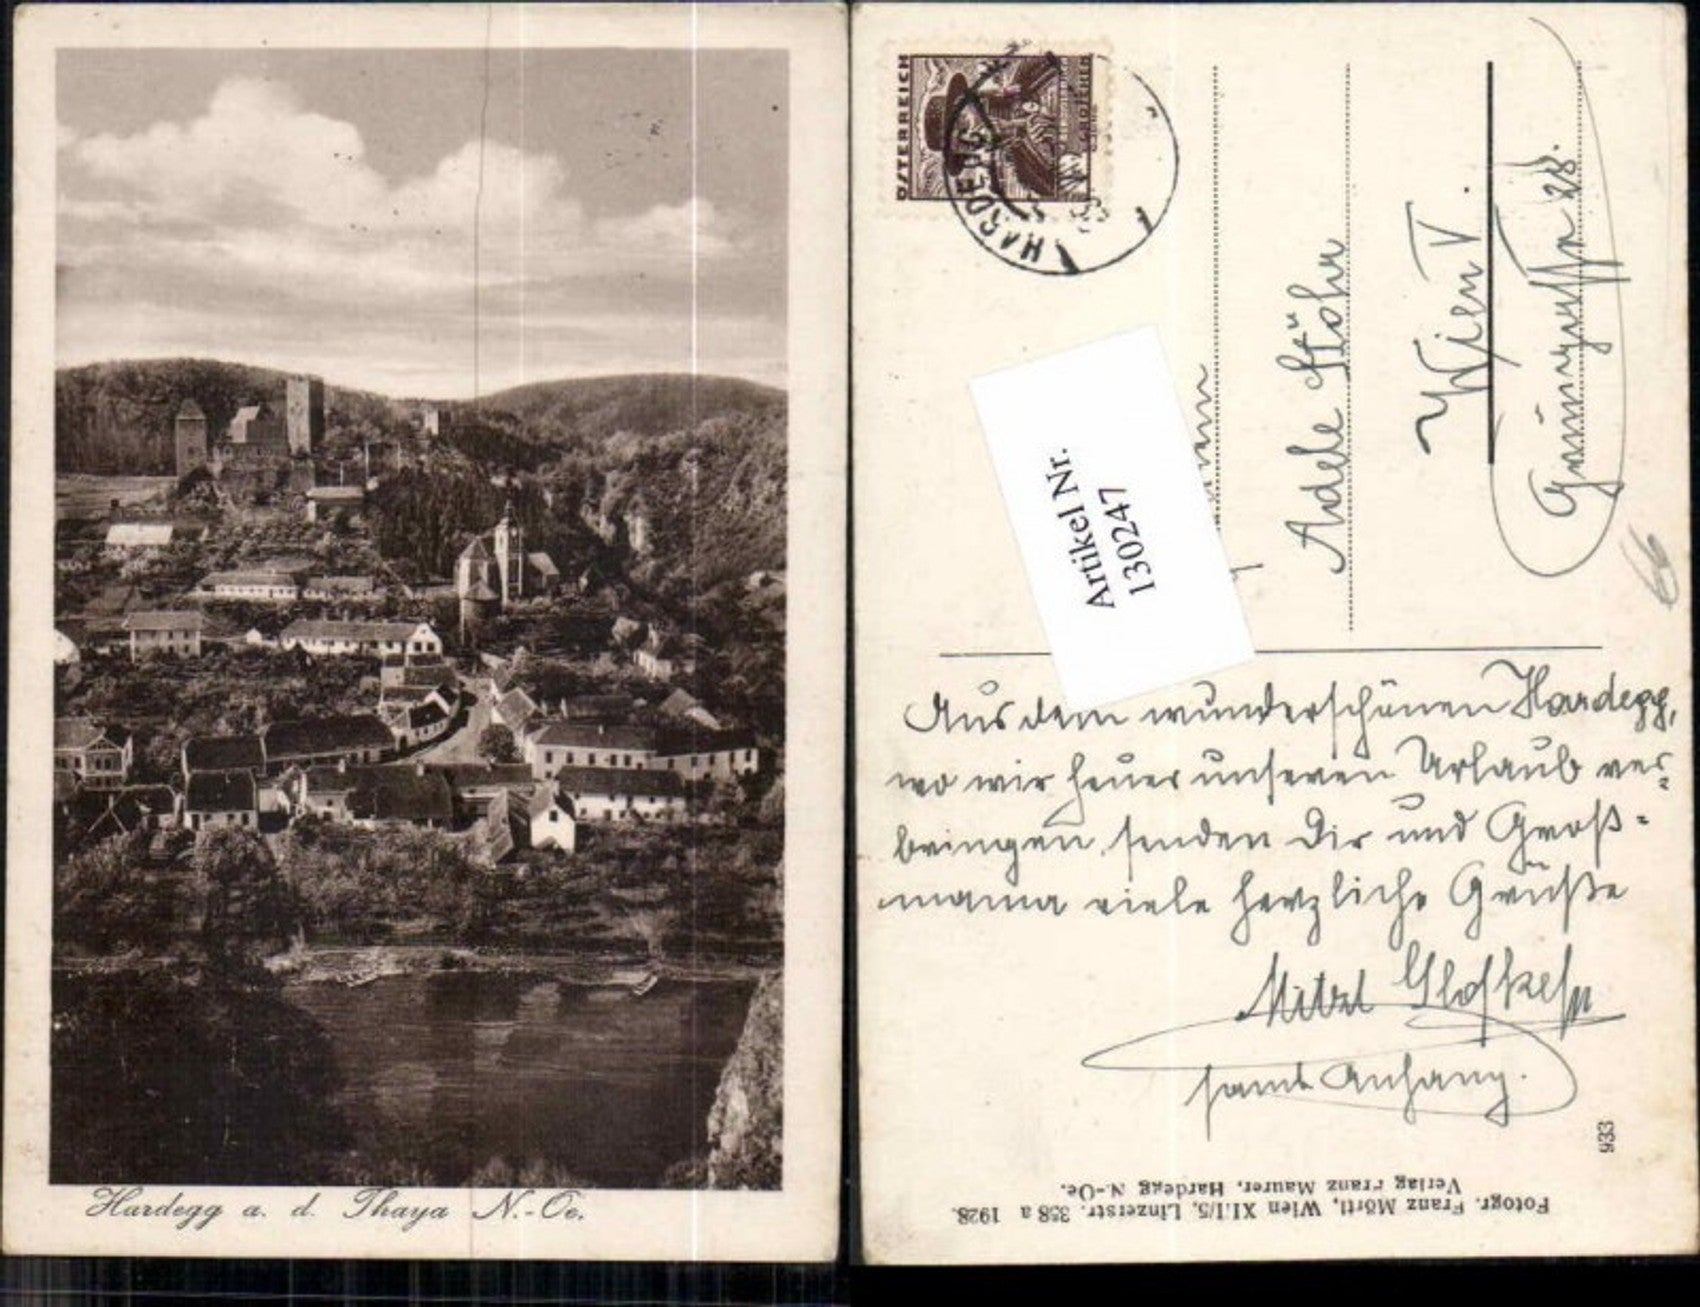 Hardegg a. d. Thaya N.-Oe.
ÖSTERREICH
GROSCHEN
HARDEGG
Artikel Nr.
130247
Adele Stöhr
Wien V.
28.
Aus dem wunderschönen Hardegg,
wo wir heuer unseren Urlaub ver-
bringen, senden Dir und Groß-
mama viele herzliche Grüße
Mitzi
samt Anhang.
66
933
Fotogr. Franz Mörtl, Wien XIII/5, Linzerstr. 358 a 1928.
Verlag Franz Maurer, Hardegg N.-Oe.